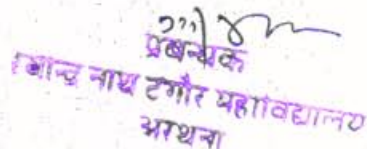 प्रबन्धक
रबीन्द्र नाथ टैगोर महाविद्यालय
अरथना